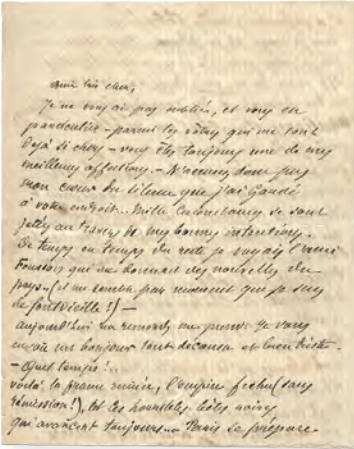 Ami très cher,
Je ne vous ai pas oublié, et vous en
particulier - parmi les vôtres qui me sont
déjà si chers - vous êtes toujours une de mes
meilleures affections. - N'accusez donc pas
mon cœur du silence que j'ai gardé
à votre endroit... Mille circonstances se sont
jetées au travers de mes bonnes intentions.
De temps en temps du reste je voyais l'ami
qui me donnait des nouvelles du
pays - (il me semble par moment que je suis
de fontvieille !) -
aujourd'hui un remords me prend. Je vous
envoie un bonjour tout décousu et bien triste.
- Quel temps !..
voilà la france ruinée, l'empire fichu (sans
rémission !), et ces horribles bêtes noires
qui avancent toujours... Paris se prépare